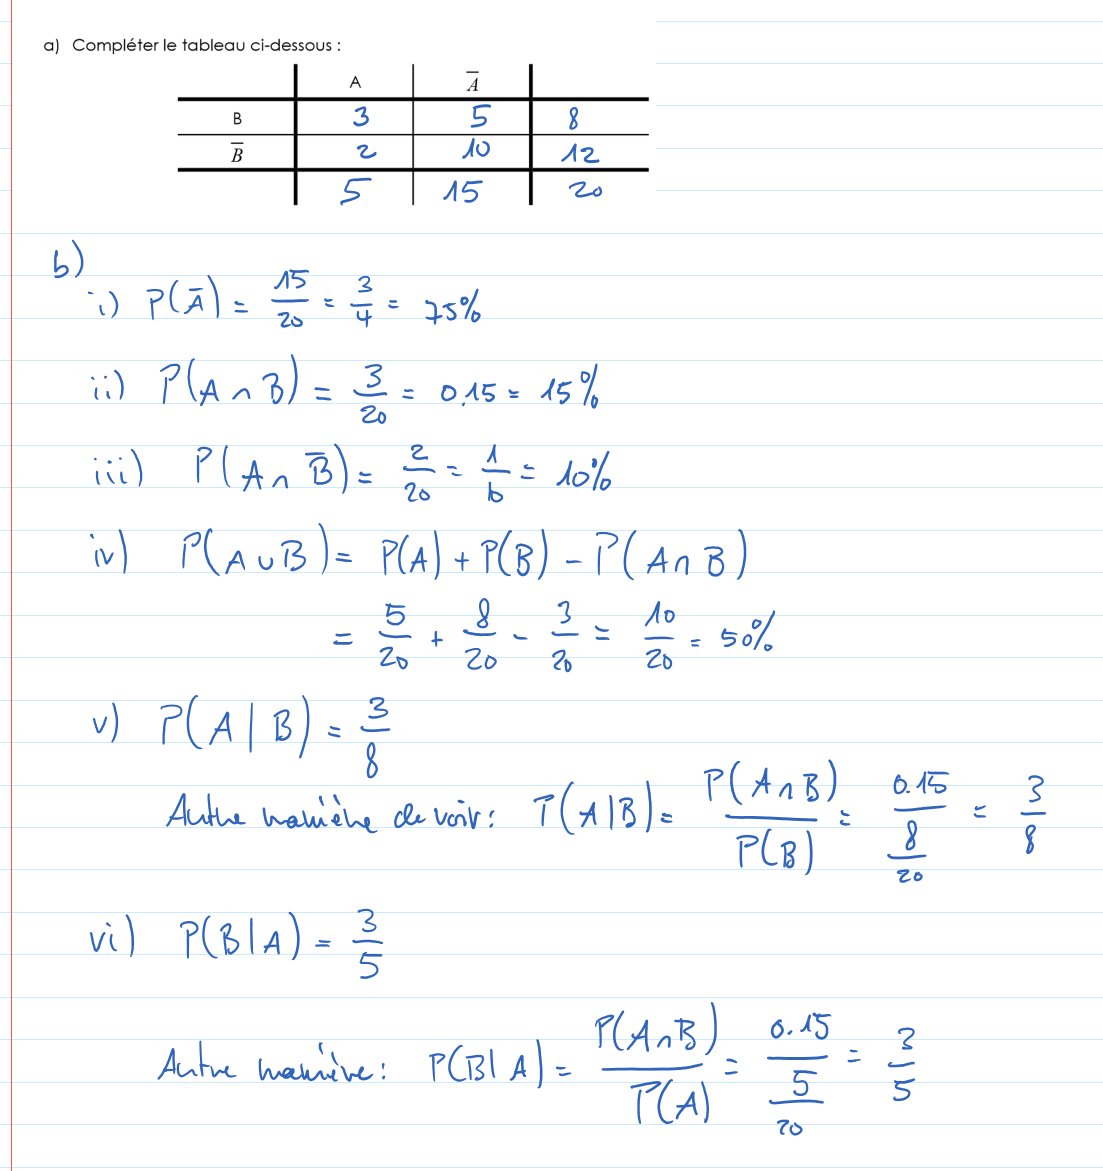 a) Compléter le tableau ci-dessous :
A A̅
B 3 5 8
B̅ 2 10 12
5 15 20
b)
i) P(A̅) = 15/20 = 3/4 = 75%
ii) P(A ∩ B) = 3/20 = 0.15 = 15%
iii) P(A ∩ B̅) = 2/20 = 1/10 = 10%
iv) P(A ∪ B) = P(A) + P(B) - P(A ∩ B)
= 5/20 + 8/20 - 3/20 = 10/20 = 50%
v) P(A | B) = 3/8
Autre manière de voir : P(A|B) = P(A ∩ B)/P(B) = 0.15/(8/20) = 3/8
vi) P(B|A) = 3/5
Autre manière : P(B|A) = P(A ∩ B)/P(A) = 0.15/(5/20) = 3/5